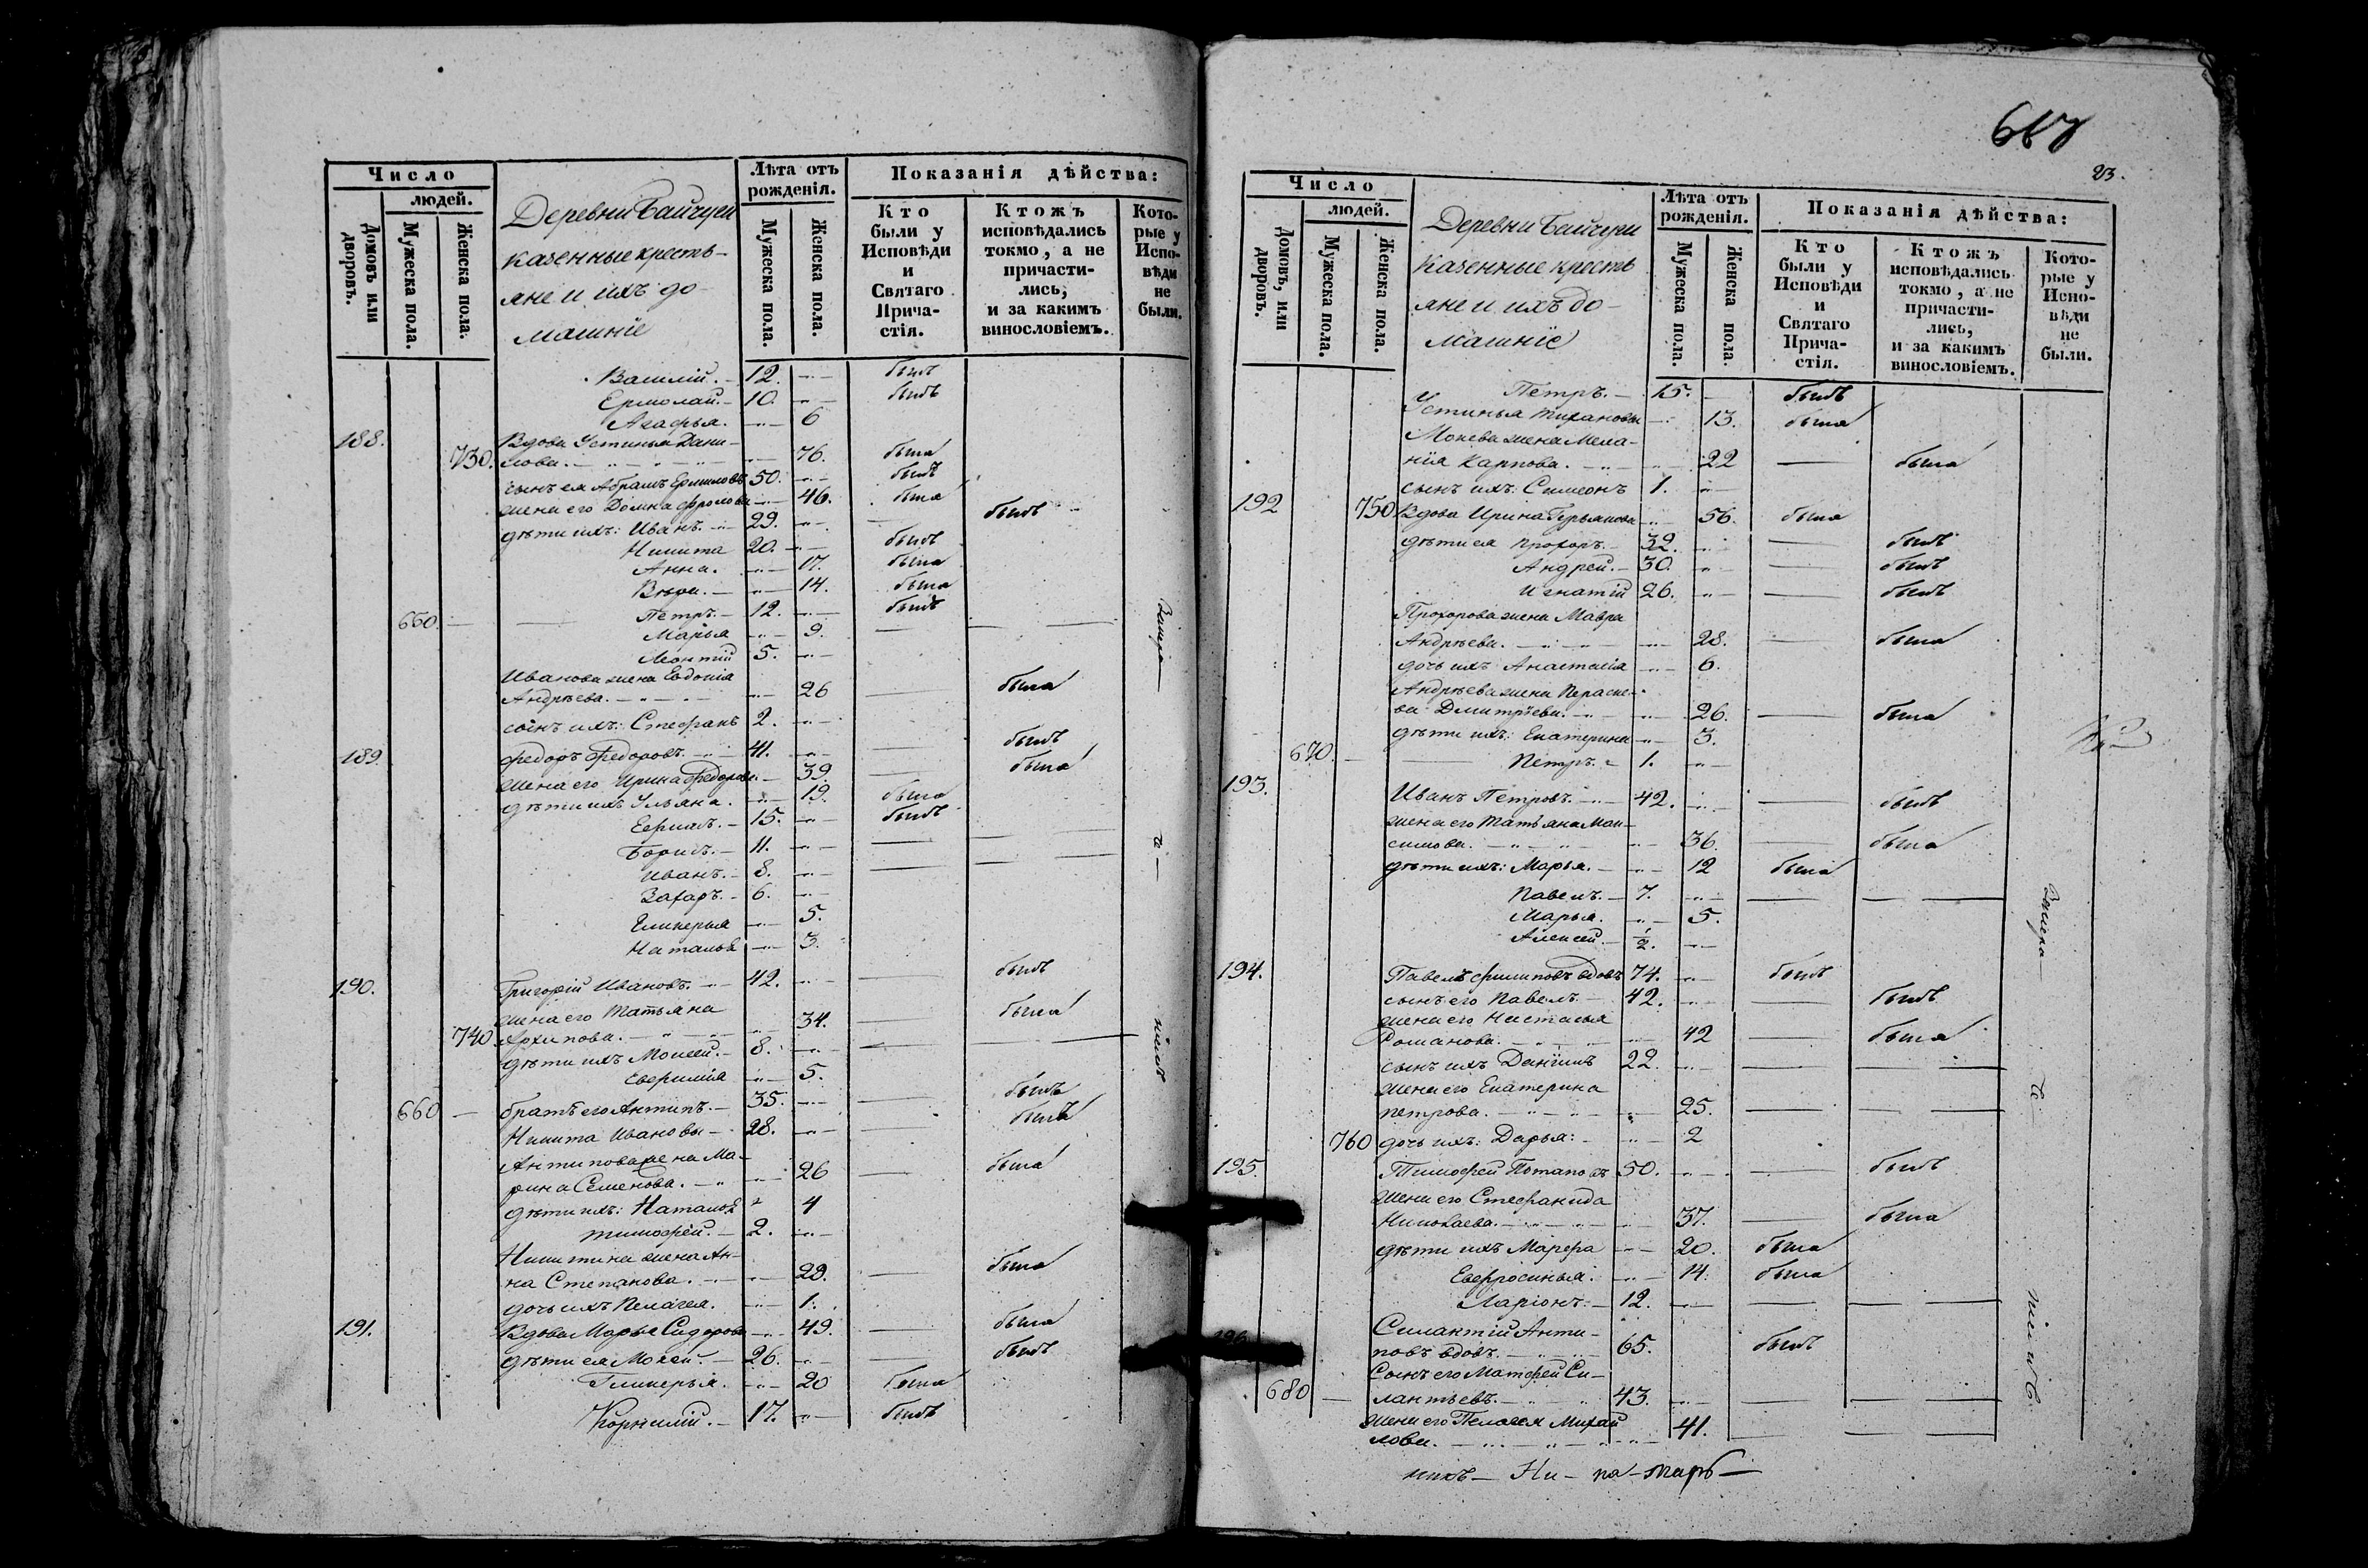 Число
людей.
Домовъ или дворовъ.
Мужеска пола.
Женска пола.
Деревни Байчуги
казенные кресть-
яне и ихъ до-
машніе
Лѣта отъ рожденія.
Мужеска пола.
Женска пола.
Показанія дѣйства:
Кто были у Исповѣди и Святаго Прича-стія.
Ктожъ исповѣдались токмо, а не причасти-лись, и за какимъ винословіемъ.
Кото-рые у Испо-вѣди не были.
Василій. 12. былъ
Ермолай. 10. былъ
Агафья. 6
188. Вдова Устинья Дани-
730. лова. 76. была
сынъ ея Абрамъ Ермиловъ 50. былъ
жена его Домна Фролова 46. была
дѣти ихъ: Иванъ. 29. былъ
Никита 20. былъ
Анна. 17. была
Вѣра. 14. была
660. Петръ. 12. былъ
Марья 9.
Леонтій 5.
Иванова жена Евдокія
Андрѣева. 26 была
сынъ ихъ: Стефанъ 2.
189. Федоръ Федоровъ. 41. былъ
жена его Ирина Федорова. 39. была
дѣти ихъ Ульяна. 19. была
Ефимъ. 15. былъ
Борисъ. 11.
Иванъ. 8.
Захаръ. 6.
Гликерья 5.
Наталья 3.
190. Григорій Ивановъ. 42. былъ
жена его Татьяна
740 Архипова. 34. была
дѣти ихъ Моисей. 8.
Евфимія 5.
660 братъ его Антипъ. 35. былъ
Никита Ивановы 28. былъ
Антипова жена Ма-
рина Семенова. 26 была
дѣти ихъ: Наталья 4
Тимофей. 2.
Никитина жена Ан-
на Степанова. 28. была
дочь ихъ Пелагея. 1.
191. Вдова Марья Сидорова 49. была
дѣти ея Мокей. 26. былъ
Гликерья. 20 была
Корнилій. 17. былъ
23.
Число
людей.
Домовъ, или дворовъ.
Мужеска пола.
Женска пола.
Деревни Байчуги
казенные кресть
яне и ихъ до-
машніе
Лѣта отъ рожденія.
Мужеска пола.
Женска пола.
Показанія дѣйства:
Кто были у Исповѣди и Святаго Прича-стія.
Ктожъ исповѣдались токмо, а не причасти-лись, и за какимъ винословіемъ.
Кото-рые у Испо-вѣди не были.
Петръ. 15. былъ
Устинья 13. была
Мокева жена Мела-
нія Карпова. 22 была
сынъ ихъ: Симеонъ 1.
192 750 Вдова Ирина Гурьянова 56. была
дѣти ея Прохоръ. 32. былъ
Андрей. 30. былъ
Игнатій 26. былъ
Прохорова жена Мавра
Андрѣева. 28. была
дочь ихъ Анастасія 6.
Андрѣева жена Параске-
ва Дмитріева. 26. была
дѣти ихъ: Екатерина 3.
670. Петръ. 1.
193. Иванъ Петровъ. 42. былъ
жена его Татьяна Мак-
симова. 36. была
дѣти ихъ: Марья. 12 была
Павелъ. 7.
Марья. 5.
Алексей. 1/2.
194. Павелъ Филиповъ вдовъ 74. былъ
сынъ его Павелъ. 42. былъ
жена его Настасья
Романова. 42 была
сынъ ихъ Даніилъ 22.
жена его Екатерина
Петрова. 25.
760 дочь ихъ: Дарья: 2
195. Тимофей Потаповъ 50. былъ
жена его Стефанида
Николаева. 37. была
дѣти ихъ Марфа 20. была
Евфросинья. 14. была
Ларіонъ. 12.
196. Силантій Анти-
повъ вдовъ. 65. былъ
Сынъ его Матфей Си-
680 лантьевъ. 43.
жена его Пелагея Михай
лова. 41.